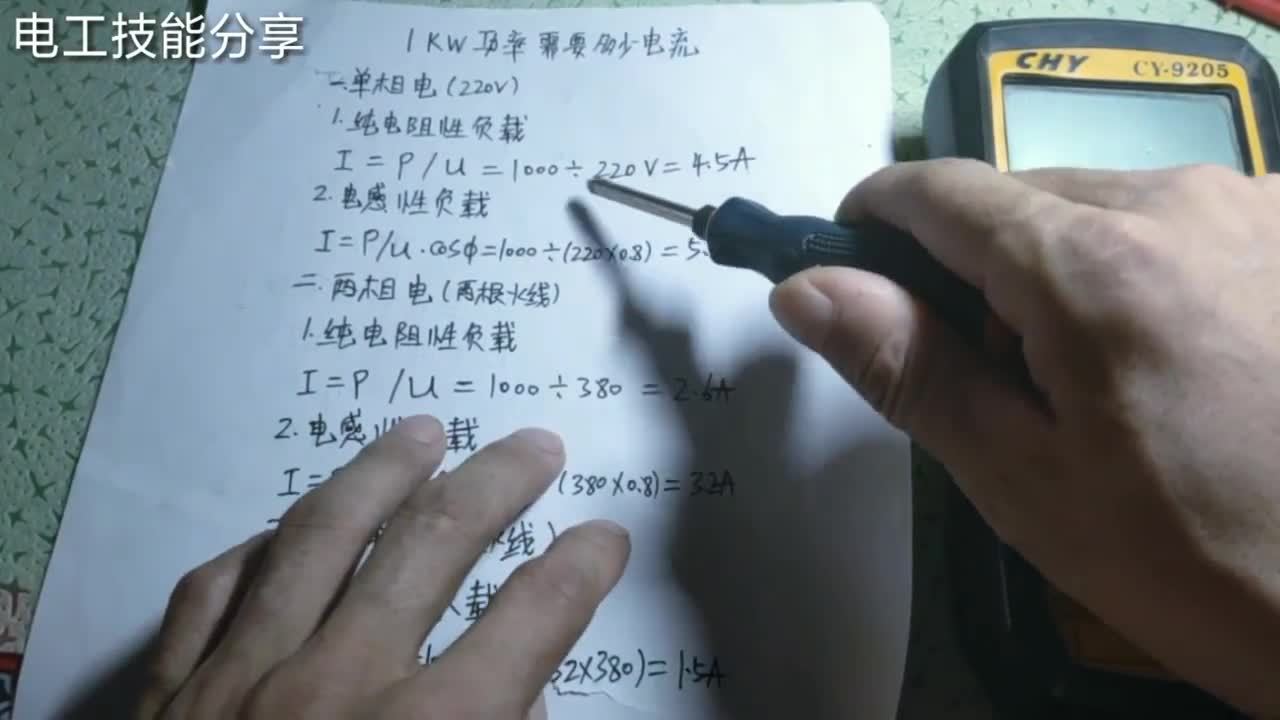 电工技能分享
1KW功率需要多少电流
一.单相电(220V)
1.纯电阻性负载
I=P/U=1000÷220V=4.5A
2.电感性负载
I=P/U·cosφ=1000÷(220×0.8)=5.
二.两相电(两根火线)
1.纯电阻性负载
I=P/U=1000÷380=2.6A
2.电感性负载
I= (380×0.8)=3.2A
线)
载
32×380)=1.5A
CHY CY-9205